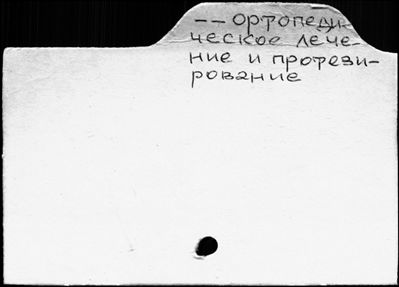 -- ортопеди-
ческое лече-
ние и протези-
рование